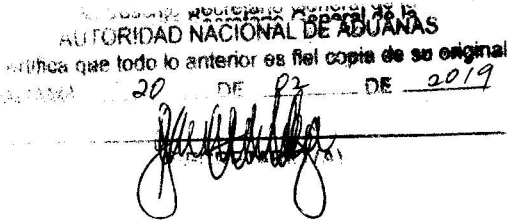 Secretario General de la
AUTORIDAD NACIONAL DE ADUANAS
que todo lo anterior es fiel copia de su original
20 DE 02 DE 2019